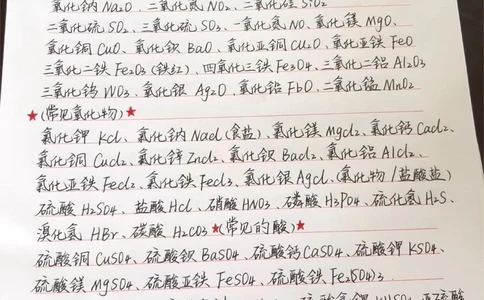 氧化钠Na2O、二氧化氮NO2、二氧化硅SiO2
二氧化硫SO2、三氧化硫SO3、一氧化氮NO、氧化镁MgO、
氧化铜CuO、氧化钡BaO、氧化亚铜Cu2O、氧化亚铁FeO
三氧化二铁Fe2O3(铁红)、四氧化三铁Fe3O4、三氧化二铝Al2O3
三氧化钨WO3、氧化银Ag2O、氧化铅PbO、二氧化锰MnO2
★(常见氧化物)★
氯化钾KCl、氯化钠NaCl(食盐)、氯化镁MgCl2、氯化钙CaCl2、
氯化铜CuCl2、氯化锌ZnCl2、氯化钡BaCl2、氯化铝AlCl2、
氯化亚铁FeCl2、氯化铁FeCl3、氯化银AgCl、(氯化物/盐酸盐)
硫酸H2SO4、盐酸HCl、硝酸HNO3、磷酸H3PO4、硫化氢H2S、
溴化氢HBr、碳酸H2CO3★(常见的酸)★
硫酸铜CuSO4、硫酸钡BaSO4、硫酸钙CaSO4、硫酸钾KSO4、
硫酸镁MgSO4、硫酸亚铁FeSO4、硫酸铁Fe2(SO4)3、